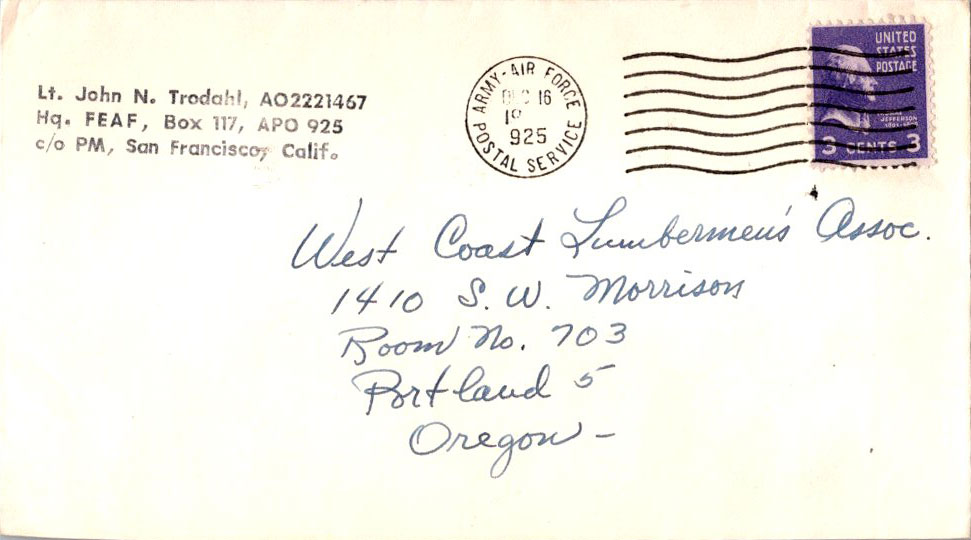 Lt. John N. Trodahl, AO2221467
Hq. FEAF, Box 117, APO 925
c/o PM, San Francisco, Calif.
ARMY-AIR FORCE
DEC 16
925
POSTAL SERVICE
UNITED
STATES
POSTAGE
JEFFERSON
3 CENTS 3
West Coast Lumbermen's Assoc.
1410 S. W. Morrison
Room No. 703
Portland 5
Oregon –